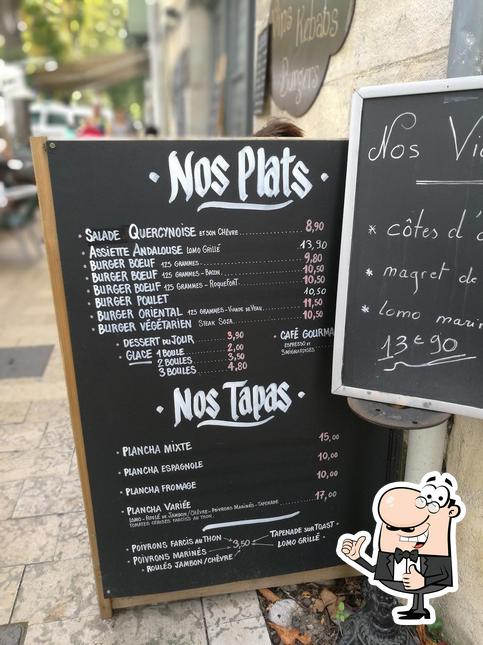 Nos Kebabs
Burgers
Nos Plats
SALADE QUERCYNOISE ET SON CHÈVRE 8,90
ASSIETTE ANDALOUSE LOMO GRILLÉ 13,90
BURGER BŒUF 125 GRAMMES 9,80
BURGER BŒUF 125 GRAMMES - BACON 10,50
BURGER BŒUF 125 GRAMMES - ROQUEFORT 10,50
BURGER POULET 10,50
BURGER ORIENTAL 125 GRAMMES - VIANDE DE VEAU 11,50
BURGER VÉGÉTARIEN STEAK SOJA 10,50
DESSERT DU JOUR 3,90
GLACE 1 BOULE 2,00
2 BOULES 3,50
3 BOULES 4,80
CAFÉ GOURMA
ESPRESSO ET
3 MIGNARDISES
Nos Tapas
PLANCHA MIXTE 15,00
PLANCHA ESPAGNOLE 10,00
PLANCHA FROMAGE 10,00
PLANCHA VARIÉE 17,00
LOMO - ROULÉ DE JAMBON/CHÈVRE - POIVRONS MARINÉS - TAPENADE
TOMATES CERISES FARCIES AU THON
POIVRONS FARCIS AU THON
POIVRONS MARINÉS
ROULÉS JAMBON/CHÈVRE
3,50
TAPENADE SUR TOAST
LOMO GRILLÉ
Nos Via
* côtes d'a
* magret de
* lomo marin
13€90